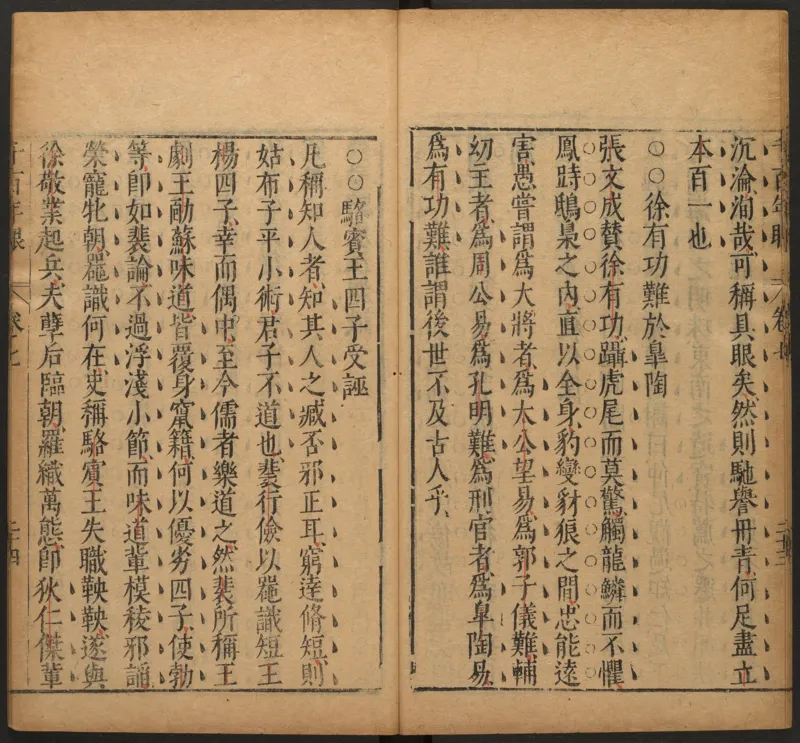 沉淪洵哉可稱具眼矣然則馳譽冊青何足盡立
本百一也
○○徐有功難於臯陶
張文成贊徐有功躡虎尾而莫驚觸龍鱗而不懼
鳳跱鴟梟之內直以全身豹變豺狼之間忠能遠
害愚嘗謂爲大將者爲太公望易爲郭子儀難輔
幼主者爲周公易爲孔明難爲刑官者爲臯陶易
爲有功難誰謂後世不及古人乎
○○駱賓王四子受誣
凡稱知人者知其人之臧否邪正耳窮達脩短則
姑布子平小術君子不道也裴行儉以器識短王
楊四子幸而偶中至今儒者樂道之然裴所稱王
劇王勔蘇味道皆覆身竄籍何以優劣四子使勃
等卽如裴論不過浮淺小節而味道輩模稜邪謟
榮寵牝朝器識何在史稱駱賓王失職鞅鞅遂與
徐敬業起兵夫孽后臨朝羅織萬態卽狄仁傑輩
千百年眼
卷七
二十四